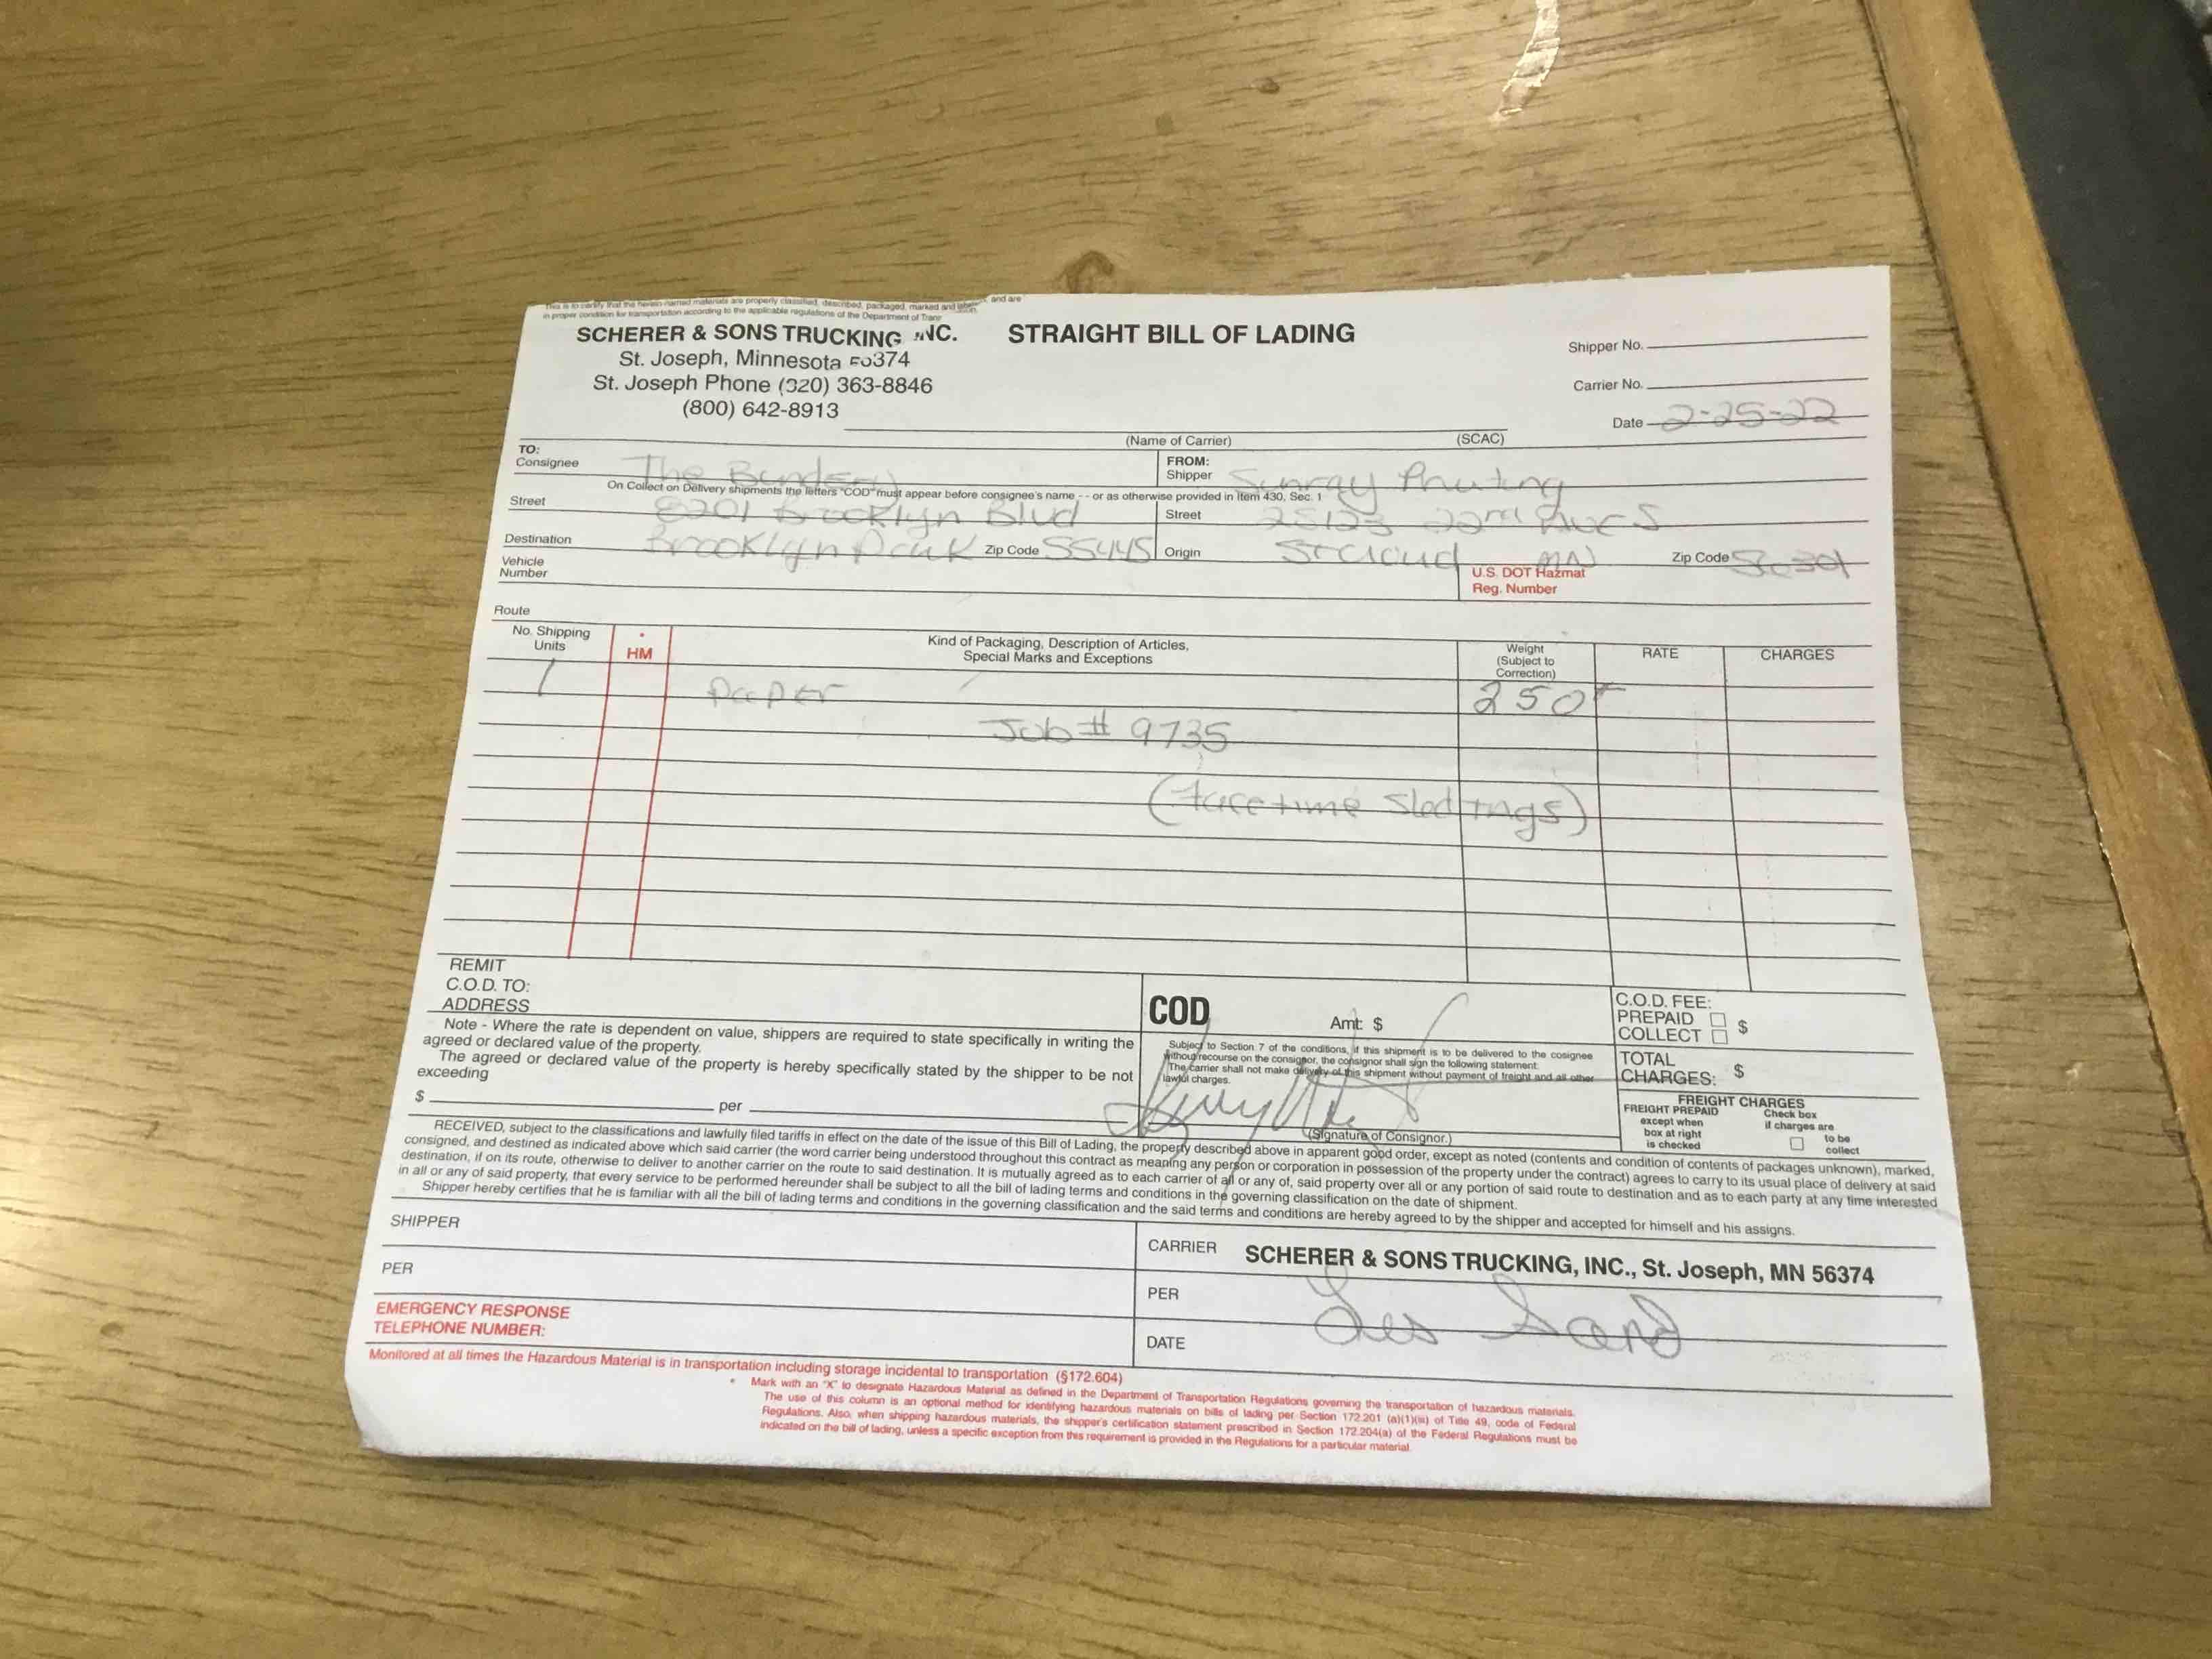 This is to certify that the herein-named materials are properly classified, described, packaged, marked and and are
in proper condition for transportation according to the applicable regulations of the Department of
SCHERER & SONS TRUCKING INC. STRAIGHT BILL OF LADING
St. Joseph, Minnesota 56374
St. Joseph Phone (320) 363-8846
(800) 642-8913
Shipper No.
Carrier No.
Date 2-25-22
(Name of Carrier) (SCAC)
TO:
Consignee The Bindery
FROM:
Shipper Sunray Printing
On Collect on Delivery shipments the letters "COD" must appear before consignee's name - - or as otherwise provided in Item 430, Sec. 1
Street 8201 Brooklyn Blvd
Street 25123 22nd Ave S
Destination Brooklyn Park Zip Code 55445
Origin St Cloud MN Zip Code 56301
Vehicle
Number
U.S. DOT Hazmat
Reg. Number
Route
No. Shipping
Units
* HM
Kind of Packaging, Description of Articles,
Special Marks and Exceptions
Weight
(Subject to
Correction)
RATE
CHARGES
1 Paper 250
Job # 9735
(facetime
REMIT
C.O.D. TO:
ADDRESS
COD Amt: $
C.O.D. FEE:
PREPAID
COLLECT $
Note - Where the rate is dependent on value, shippers are required to state specifically in writing the
agreed or declared value of the property.
The agreed or declared value of the property is hereby specifically stated by the shipper to be not
exceeding
$ per
Subject to Section 7 of the conditions, if this shipment is to be delivered to the cosignee
without recourse on the consignor, the consignor shall sign the following statement:
The carrier shall not make delivery of this shipment without payment of freight and all other
lawful charges.
(Signature of Consignor.)
TOTAL
CHARGES: $
FREIGHT CHARGES
FREIGHT PREPAID
except when
box at right
is checked
Check box
if charges are
to be
collect
RECEIVED, subject to the classifications and lawfully filed tariffs in effect on the date of the issue of this Bill of Lading, the property described above in apparent good order, except as noted (contents and condition of contents of packages unknown), marked,
consigned, and destined as indicated above which said carrier (the word carrier being understood throughout this contract as meaning any person or corporation in possession of the property under the contract) agrees to carry to its usual place of delivery at said
destination, if on its route, otherwise to deliver to another carrier on the route to said destination. It is mutually agreed as to each carrier of all or any of, said property over all or any portion of said route to destination and as to each party at any time interested
in all or any of said property, that every service to be performed hereunder shall be subject to all the bill of lading terms and conditions in the governing classification on the date of shipment.
Shipper hereby certifies that he is familiar with all the bill of lading terms and conditions in the governing classification and the said terms and conditions are hereby agreed to by the shipper and accepted for himself and his assigns.
SHIPPER
PER
CARRIER SCHERER & SONS TRUCKING, INC., St. Joseph, MN 56374
PER Les Sand
DATE
EMERGENCY RESPONSE
TELEPHONE NUMBER:
Monitored at all times the Hazardous Material is in transportation including storage incidental to transportation (§172.604)
* Mark with an "X" to designate Hazardous Material as defined in the Department of Transportation Regulations governing the transportation of hazardous materials.
The use of this column is an optional method for identifying hazardous materials on bills of lading per Section 172.201 (a)(1)(iii) of Title 49, code of Federal
Regulations. Also, when shipping hazardous materials, the shipper's certification statement prescribed in Section 172.204(a) of the Federal Regulations must be
indicated on the bill of lading, unless a specific exception from this requirement is provided in the Regulations for a particular material.